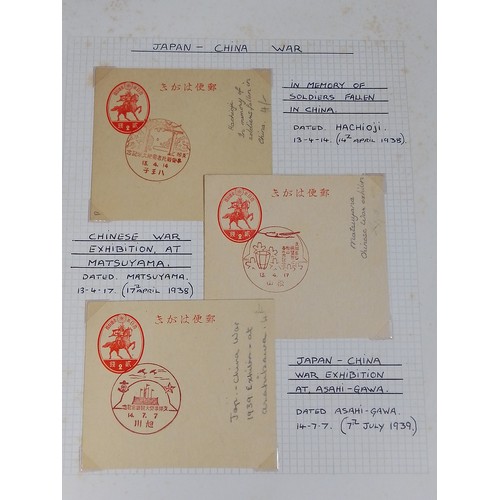 JAPAN - CHINA WAR
きがは便郵
13.4.14
八王子
Hachioji
In memory of
soldiers fallen in
China 4/-
IN MEMORY OF
SOLDIERS FALLEN
IN CHINA.
DATED. HACHIOJI.
13-4-14. (14TH APRIL 1938).
きがは便郵
13.4.17
Matsuyama
Chinese War exhibition
CHINESE WAR
EXHIBITION, AT
MATSUYAMA.
DATED. MATSUYAMA.
13-4-17. (17TH APRIL 1938)
きがは便郵
14.7.7
川旭
Jap.-China War
1939 Exhibition - at
JAPAN - CHINA
WAR EXHIBITION
AT ASAHI-GAWA.
DATED ASAHI-GAWA.
14-7-7. (7TH JULY 1939.)